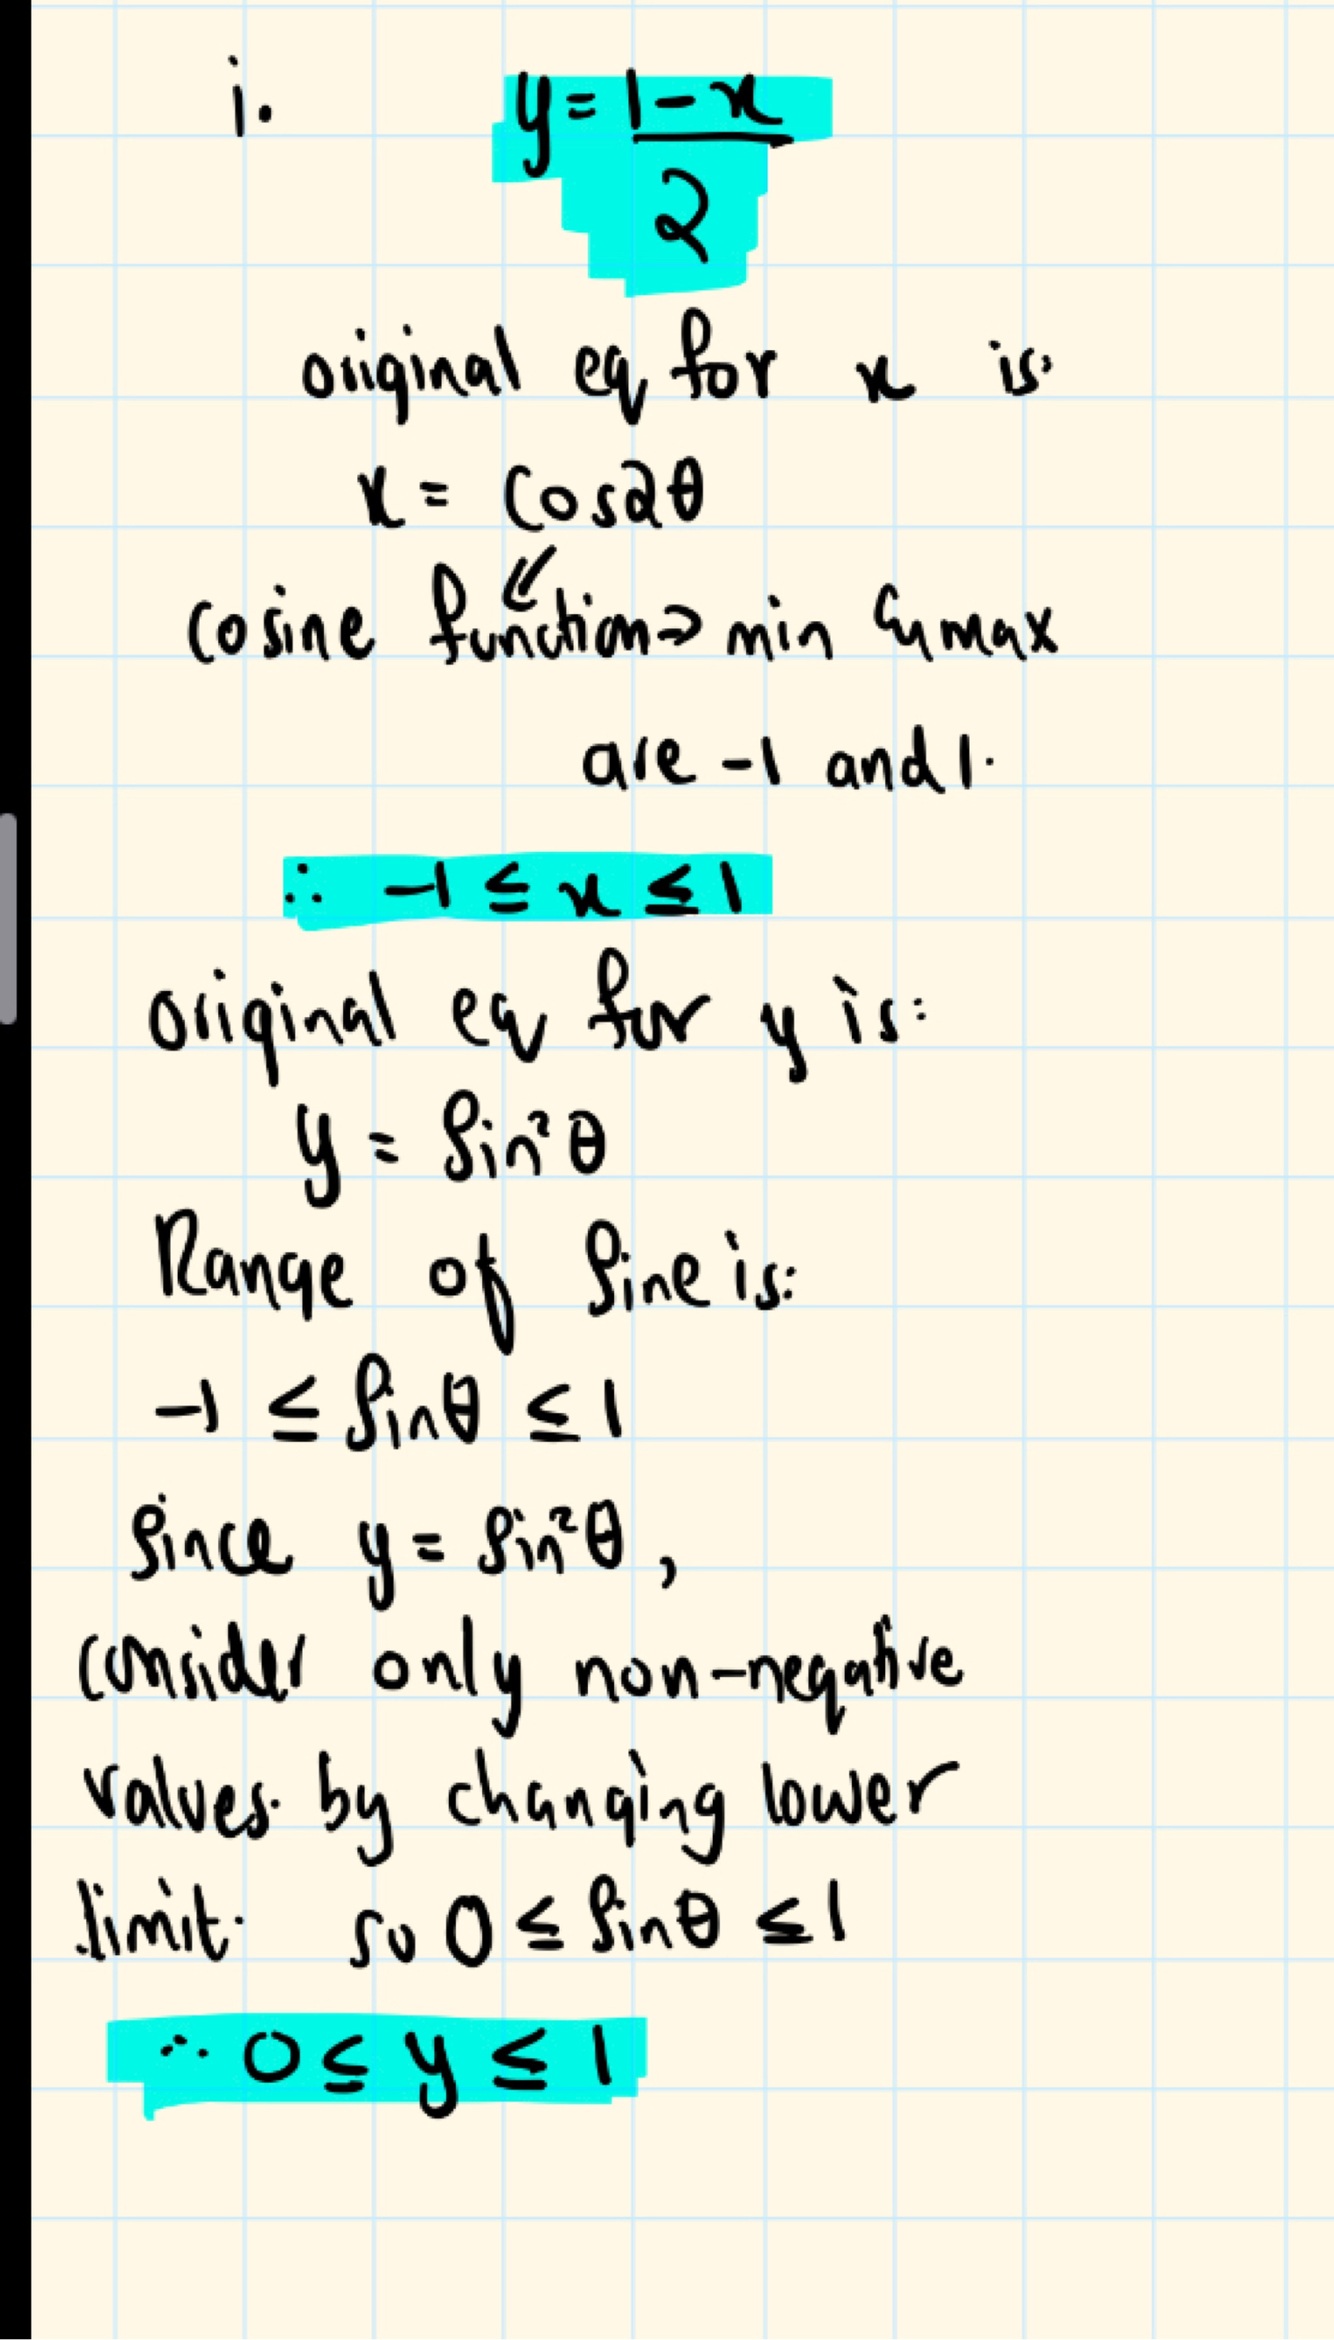 i. y = 1-x
2
original eq for x is:
x = cos2θ
cosine function ⇒ min & max
are -1 and 1.
∴ -1 ≤ x ≤ 1
original eq for y is:
y = sin²θ
Range of sine is:
-1 ≤ sinθ ≤ 1
since y = sin²θ,
consider only non-negative
values. by changing lower
limit. so 0 ≤ sinθ ≤ 1
∴ 0 ≤ y ≤ 1